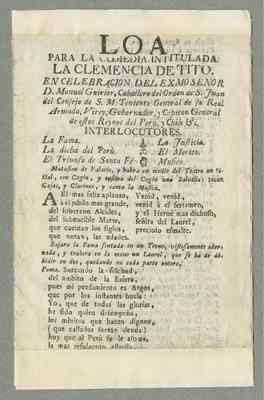 LOA
PARA LA COMEDIA INTITULADA:
LA CLEMENCIA DE TITO.
EN CELEBRACION DEL EXMO SEÑOR
D. Manuel Guirior, Caballero del Orden de S. Juan
del Consejo de S. M. Teniente General de su Real
Armada, Virrey, Gobernador, y Capitan General
de estos Reynos del Perú, y Chile &c.
INTERLOCUTORES.
La Fama. La Justicia.
La dicha del Perú. El Merito.
El Triunfo de Santa Fé. Musica.
Mutacion de Palacio, y habrá en medio del Teatro un
Cajas, y Clarines, y canta la Musica.
Al mas feliz aplauso, Venid, venid,
á el jubilo mas grande, venid á el sereno,
del soberano Alcides, y el Heroe mas dichoso,
del invencible Marte, señas del Laurel,
que cuentan los siglos, precioso esmalte.
que notan, las edades.
Bajará la Fama sentada en un Trono, vistosamente ador-
nada, y traherá en la mano un Laurel, que se ha de di-
bidir en dos, quedando en cada parte entero.
Fama. Surcando la
del ambito de la Esfera,
pues mi pensamiento es Argos,
que por los instantes buela:
Yo, que de todas las glorias,
he sido quien desempeña,
los méritos que hacen dignos,
(que callados fueran deuda)
hoy que al Perú se le
la mas